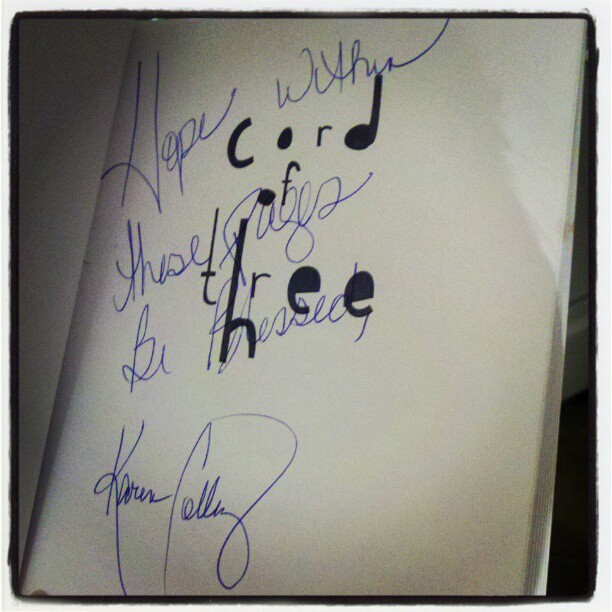 Hope within
cord
of
these Pages
three
Be Blessed,
Karen